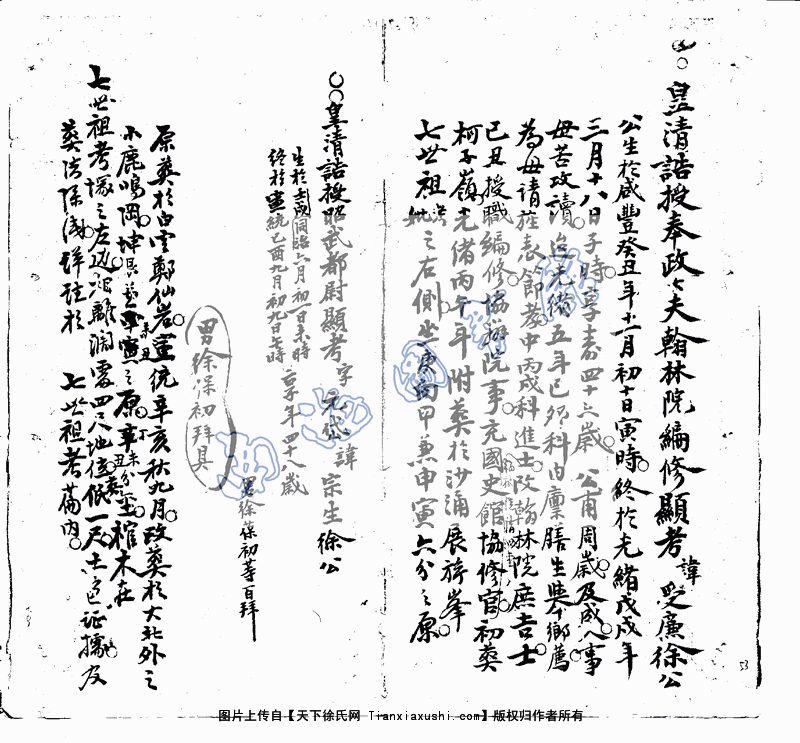 皇清誥授奉政大夫翰林院編修顯考諱受廉徐公
公生於咸豐癸丑年十二月初十日寅時終於光緒戊戌年
三月十八日子時享壽四十六歲公甫周歲及成人事
母苦攻讀迨光緒五年己卯科由廩膳生舉鄉薦
為母請旌表節孝中丙戌科進士改翰林院庶吉士
己丑授職編修協辦院事充國史館協修官初葬
柯子嶺光緒丙午年附葬於沙瀰展旂峯
七世祖妣之右側坐庚向甲兼申寅六分之原
皇清誥授昭武都尉顯考字元岱諱宗生徐公
生於壬戌同治六月初一日未時
終於宣統己酉九月初九日午時
享年四十八歲
男徐葆初等百拜
男徐保初拜具
原葬於白雲鄭仙岩宣統辛亥秋九月改葬於大北外之
小鹿鳴岡坤艮兼未丑之原
棺木在
七世祖考墳之左邊相離濶處四尺地位低一尺土色證據及
葬法深淺詳註於七世祖考篇內
53
图片上传自【天下徐氏网 Tianxiaxushi.com】版权归作者所有